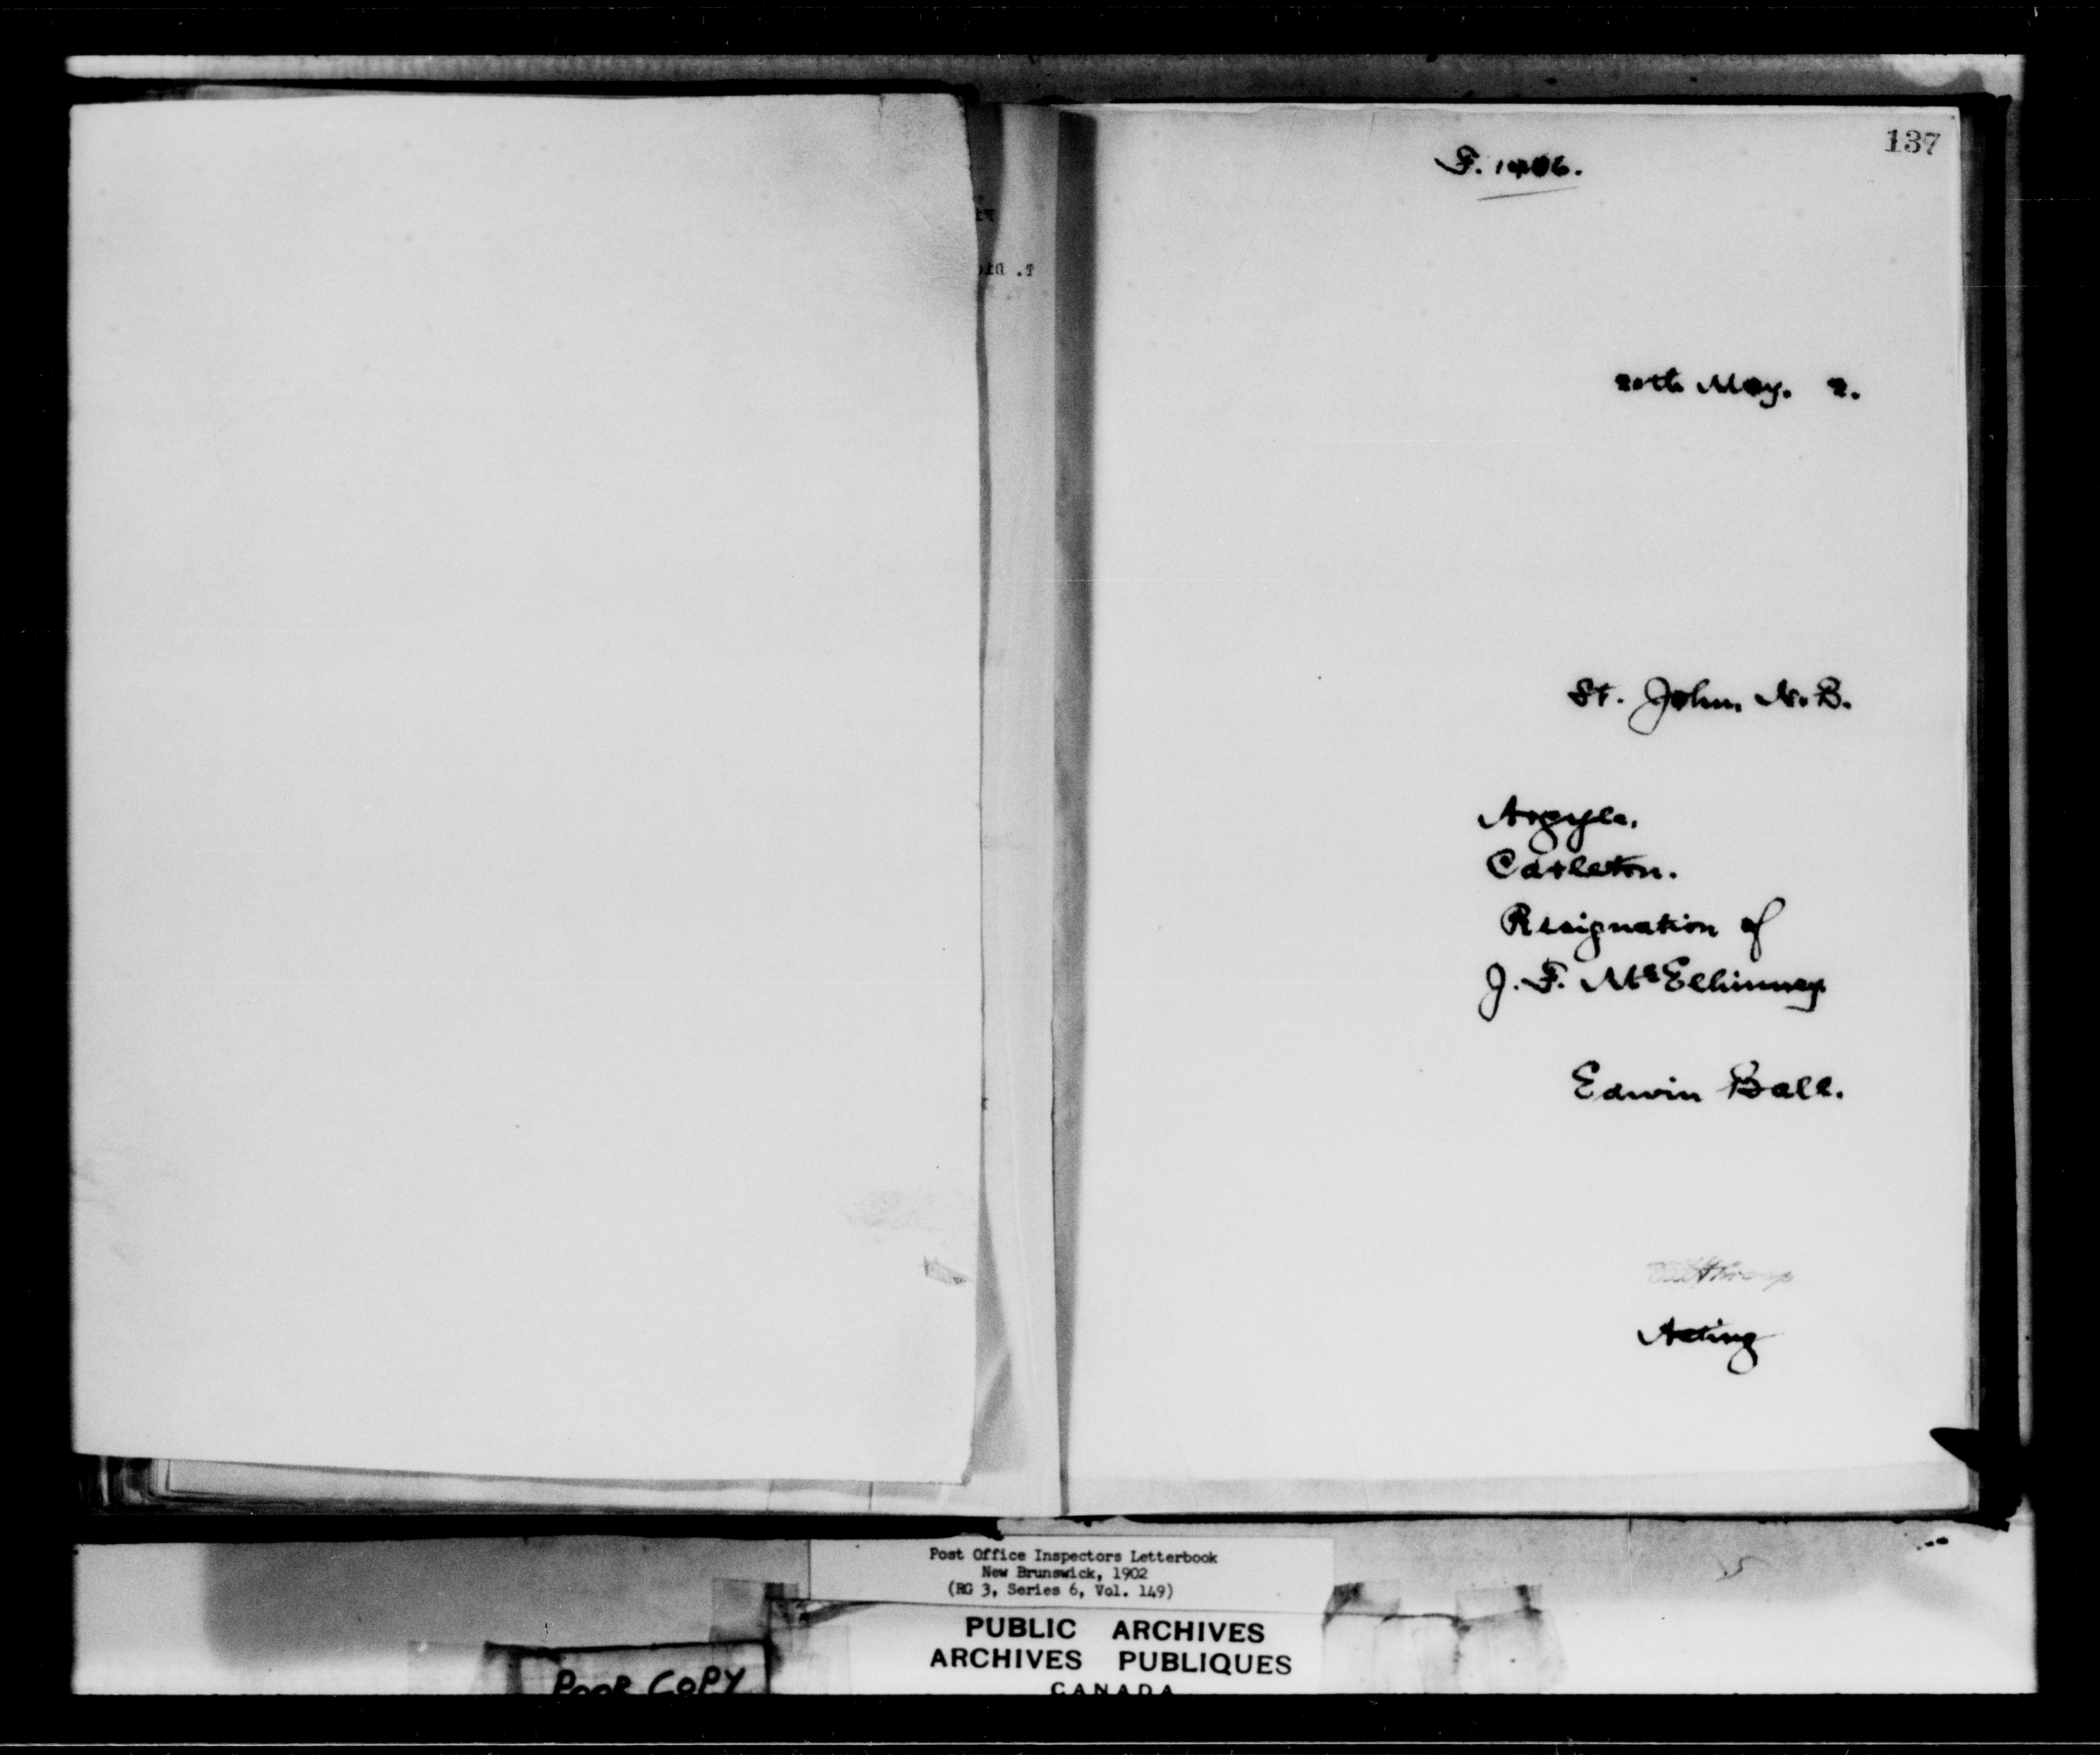 137
F. 1406.
20th May. 2.
St. John, N.B.
Argyle.
Carleton.
Resignation of
J. F. McElhinney
Edwin Ball.
Acting
Post Office Inspectors Letterbook
New Brunswick, 1902
(RG 3, Series 6, Vol. 149)
PUBLIC ARCHIVES
ARCHIVES PUBLIQUES
CANADA
POOR COPY